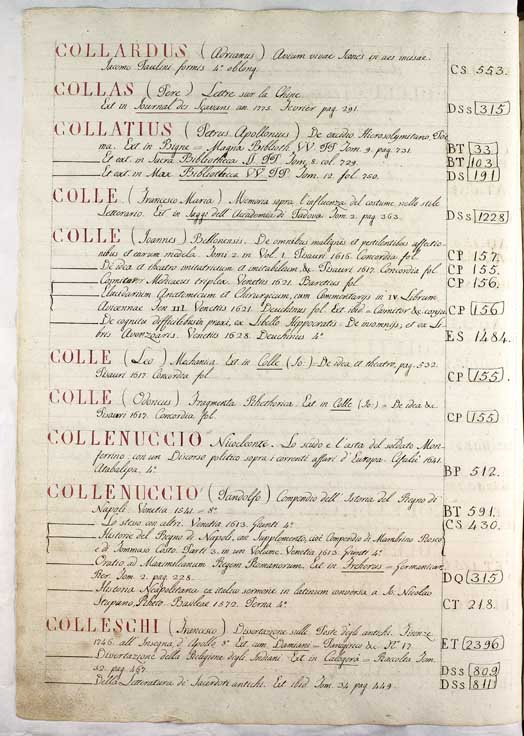 COLLARDUS (Adrianus) Avium vivae Icones in aes incisae.
Iacomo Paulini formis 4° oblong. CS 553.
COLLAS (Pere) Lettre sur la Chine.
Ext in Journal des Sçavans an. 1775. Fevrier pag. 291. DSs 315
COLLATIUS (Petrus Apollonius) De excidio Hierosolymitano, Poe-
ma. Ext in Bigne = Magna Biblioth. VV. PP. Tom. 9. pag. 731. BT 33
Et ext. in Sacra Bibliotheca SS. PP. Tom. 8. col. 729. BT 103
Et ext. in Max. Bibliotheca VV. PP. Tom. 12. fol. 750. DS 191
COLLE (Francesco Maria) Memoria sopra l'influenza del costume nello stile
Letterario. Ext in Saggi dell'Accademia di Padova Tom. 2. pag. 363. DSs 1228
COLLE (Ioannes) Bellunensis. De omnibus malignis et pestilentibus affectio-
nibus et earum medela. Tomi 2. in Vol. 1. Pisauri 1616. Concordia fol. CP 157.
De idea et theatro imitatricium et imitabilium &c. Pisauri 1617. Concordia fol. CP 155.
Cosmitor Mediceus triplex. Venetiis 1621. Baretius fol. CP 156.
Elucidarium Anatomicum et Chirurgicum, cum Commentariis in IV. Librum
Avicennae Fen III. Venetiis 1621. Deuchinus fol. Ext ibid = Cosmitor &c. CP 156
De cognitu difficilibus in praxi, ex Libello Hippocratis. De insomniis, et ex Li-
bris Avenzoaris. Venetiis 1628. Deuchinus 4° ES 1484.
COLLE (Leo) Mechanica. Ext in Colle (Io:) = De idea et theatro, pag. 532.
Pisauri 1617 Concordia fol. CP 155.
COLLE (Odoricus) Fragmenta Rhethorica. Ext in Colle (Io:) = De idea &c
Pisauri 1617. Concordia fol. CP 155
COLLENUCCIO Nicoleonte. Lo scudo e l'asta del soldato Mon-
ferrino, con un Discorso politico sopra i correnti affari d'Europa. 1641.
Atabalipa. 4° BP 512.
COLLENUCCIO (Pandolfo) Compendio dell'Istoria del Regno di
Napoli. Venetia 1541. = 8° BT 591.
Lo stesso con altri. Venetia 1613. Giunti 4° CS 430.
Historie del Regno di Napoli, con Supplemento, cioè Compendio di Mambrino Roseo,
e di Tommaso Costo. Parti 3. in un Volume. Venetia 1613. Giunti 4°
Oratio ad Maximilianum Regem Romanorum. Ext in Freherus = Germanicar.
Rer. Tom. 2. pag. 228. DQ 315
Historia Neapolitana ex italico sermone in latinum conversa a Io. Nicolao
Stupano, Rheto. Basileae 1572. Perna 4° CT 218.
COLLESCHI (Francesco) Dissertazione sulle Feste degli antichi. Firenze
1746. all'Insegna d'Apollo 8° Ext cum Damiani = Panegirico &c N° 17 ET 2396
Dissertazione della Religione degl'Indiani. Ext in Calogerà = Raccolta Tom.
32. pag. 467. DSs 809
Della Letteratura de' Sacerdoti antichi. Ext ibid Tom. 34 pag. 449. DSs 811